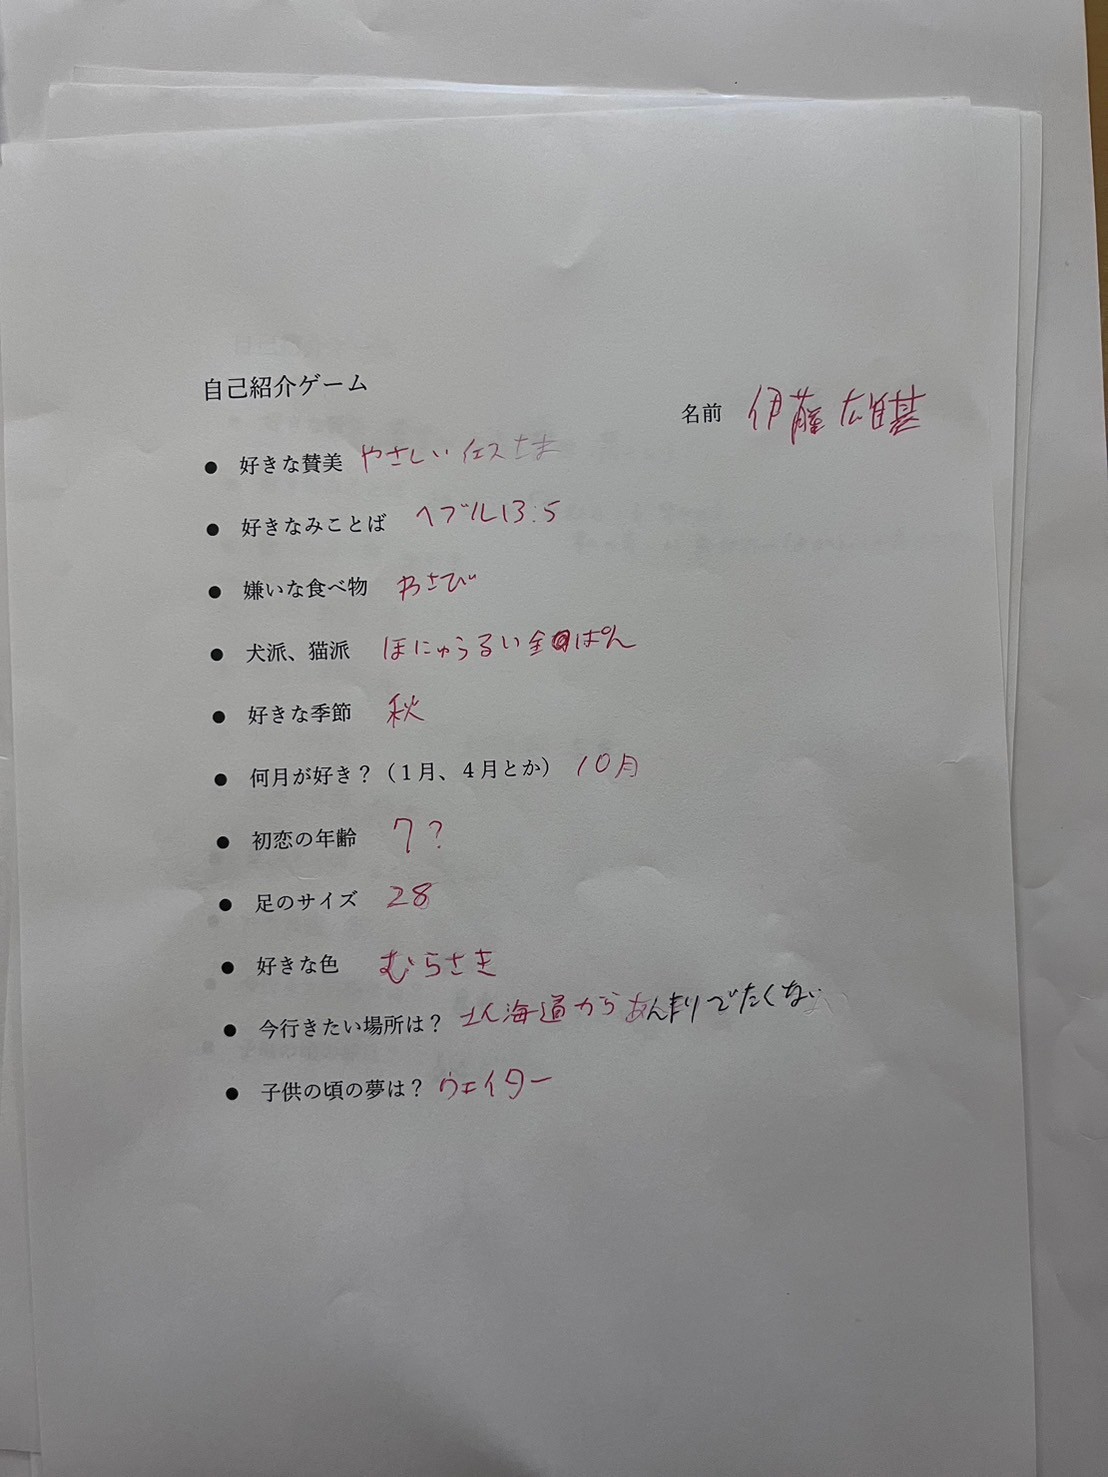 自己紹介ゲーム
名前 伊藤 広基
● 好きな賛美 やさしいイエスさま
● 好きなみことば ヘブル13:5
● 嫌いな食べ物 わさび
● 犬派、猫派 ほにゅうるい全ぱん
● 好きな季節 秋
● 何月が好き？（１月、４月とか） 10月
● 初恋の年齢 7?
● 足のサイズ 28
● 好きな色 むらさき
● 今行きたい場所は？ 北海道からあんまりでたくない
● 子供の頃の夢は？ ウェイター